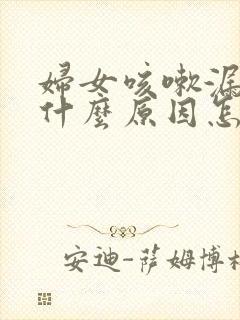 婦女咳嗽漏
什麼原因怎
安迪-薩姆博格